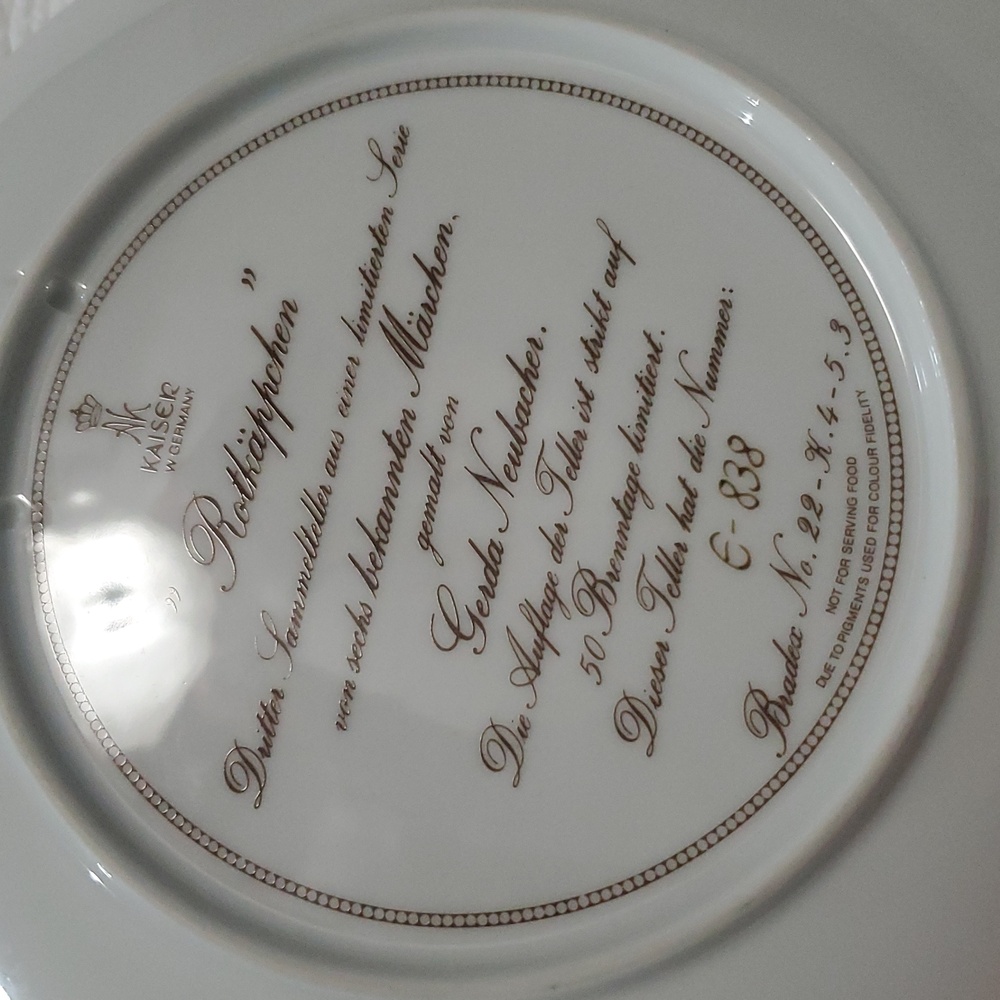 KAISER
W. GERMANY
„Rotkäppchen”
Dritter Sammelteller aus einer limitierten Serie
von sechs bekannten Märchen,
gemalt von
Gerda Neubacher.
Die Auflage der Teller ist strikt auf
50 Brenntage limitiert.
Dieser Teller hat die Nummer:
E-838
Bradex No. 22-K.4-5.3
NOT FOR SERVING FOOD
DUE TO PIGMENTS USED FOR COLOUR FIDELITY